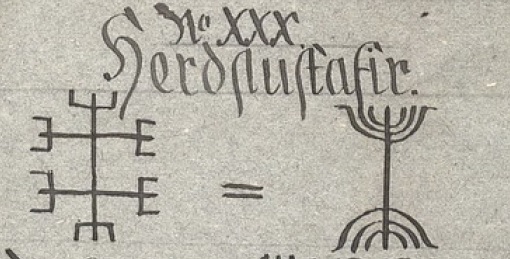 No XXX.
Herdſluſtafir.
=